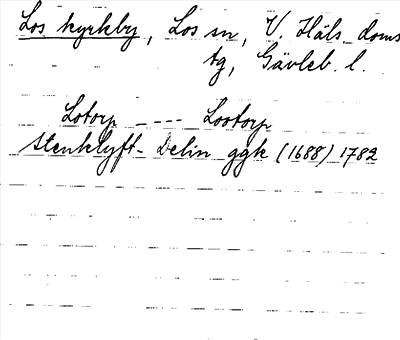 Los kyrkby, Los sn, V. Häls. doms
tg, Gävleb. l.
Lotorp ---- Lootorp
Stenklyft- Delin ggk (1688) 1782